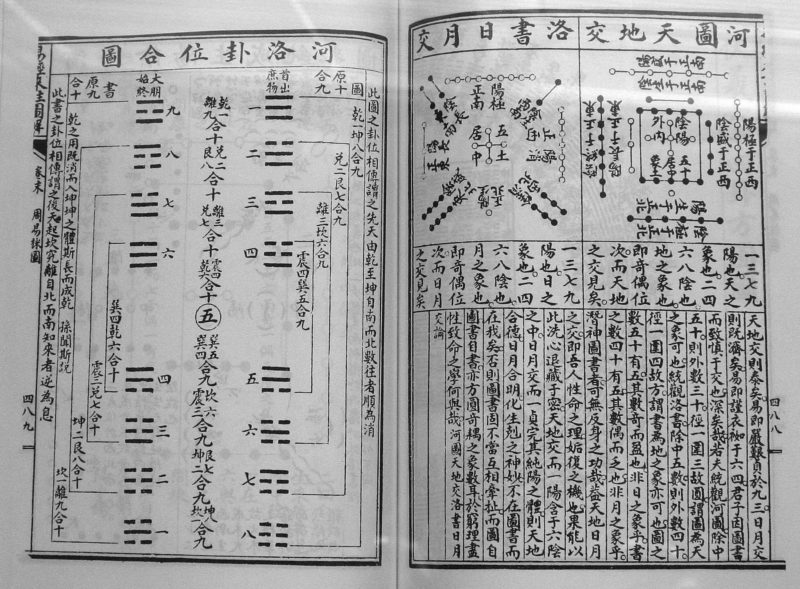 河圖天地交
洛書日月交
陽極于正西
陰盛于正西
陰陽
五十
居中
外內
陽極
正南
五
土
居
中
一三七九
陽也天之
象也二四
六八陰也
地之象也
即奇偶位
次而天地
之交見矣
一三七九
陽也日之
象也二四
六八陰也
月之象也
即奇偶位
次而日月
之交見矣
天地交則泰矣易即嚴艱貞於九三日月交
則既濟矣易即謹衣袽于六四君子因圖書
而致慎于交也深矣哉若夫統觀河圖除中
五十則外數三十徑一圍三故圓謂圖為天
之象可也統觀洛書除中五數則外數四十
徑一圍四故方謂書為地之象亦可也圖之
數五十有五其數奇而盈也非日之象乎書
之數四十有五其數偶而乏也非月之象乎
潛神圖書者可無反身之功哉蓋天地日月
之交即吾人性命之理姤復之機也果能以
此洗心退藏于密天地交而一陽含于六陰
之中日月交而一貞完其純陽之體則天地
合德日月合明化生剋之神妙不在圖書而
在我矣否則圖書固不當互相牽扯而圖自
圖書自書亦方圓奇耦之象數耳於窮理盡
性致命之學何與哉 河圖天地交洛書日月
交論
四八八
河洛卦位合圖
此圖之卦位相傳謂之先天由乾至坤自南而北數往者順為消
圖
原十
合九
乾一坤八合九
兌二艮七合九
離三坎六合九
震四巽五合九
首出
庶物
一
二
三
四
五
六
七
八
乾一
離九
合十
兌二
艮八
合十
離三
兌七
合十
震四
乾六
合十
五
巽五
巽四
合九
坎六
震三
合九
艮七
坤二
合九
坤八
坎一
合九
大明
始終
九
八
七
六
四
三
二
一
書
原九
合十
巽四乾六合十
震三兌七合十
坤二艮八合十
坎一離九合十
乾之用既消而入坤坤之體斯長而成乾 孫聞斯說
此書之卦位相傳謂之後天起坎究離自北而南知來者逆為息
卷末 周易採圖
四八九